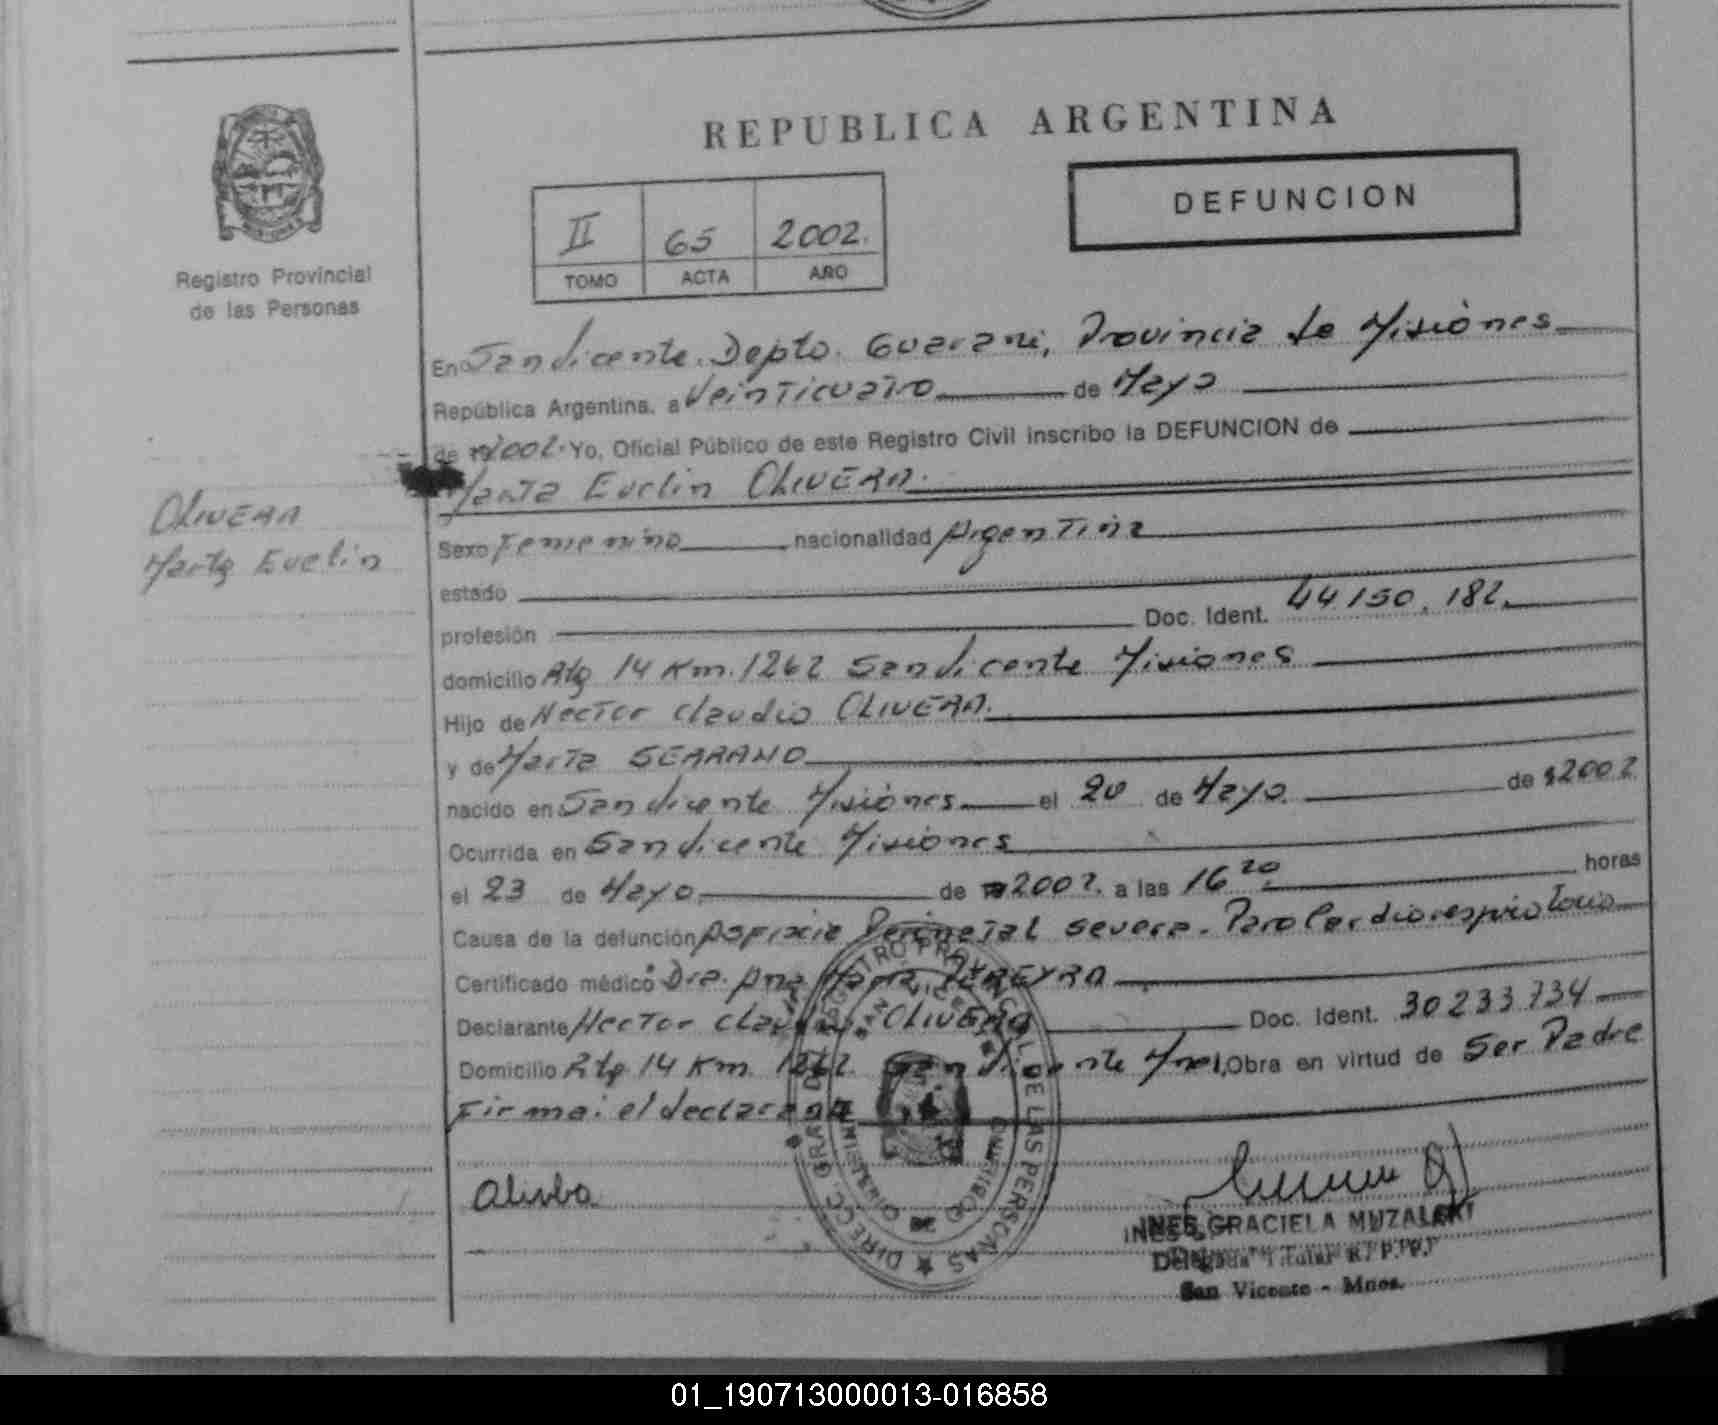 REPUBLICA ARGENTINA
DEFUNCION
II 65 2002.
TOMO ACTA AÑO
Registro Provincial
de las Personas
OLIVERA
Marta Evelin
En San Vicente. Depto. Guarani, Provincia de Misiones
República Argentina, a Veinticuatro de Mayo
de 2002. Yo, Oficial Público de este Registro Civil inscribo la DEFUNCION de
Marta Evelin OLIVERA.
Sexo Femenino nacionalidad Argentina
estado
profesión Doc. Ident. 44150.182.
domicilio Rta 14 Km. 1262 San Vicente Misiones
Hijo de Hector Claudio OLIVERA.
y de Marta SERRANO
nacido en San Vicente Misiones el 20 de Mayo. de 2002
Ocurrida en San Vicente Misiones
el 23 de Mayo. de 2002. a las 16 20 horas
Causa de la defunción Asfixia Perinatal severa. Paro Cardiorespiratorio
Certificado médico Dra. Ana Maria
Declarante Hector Claudio OLIVERA Doc. Ident. 30233734
Domicilio Rta 14 Km. 1262. San Vicente Mnes, Obra en virtud de Ser Padre
Firma: el declarante
DIRECC. GRAL. DEL REGISTRO PROVINCIAL DE LAS PERSONAS
SAN VICENTE
INES GRACIELA MUZALSKI
Delegada Titular R. P. P.
San Vicente - Mnes.
01_190713000013-016858